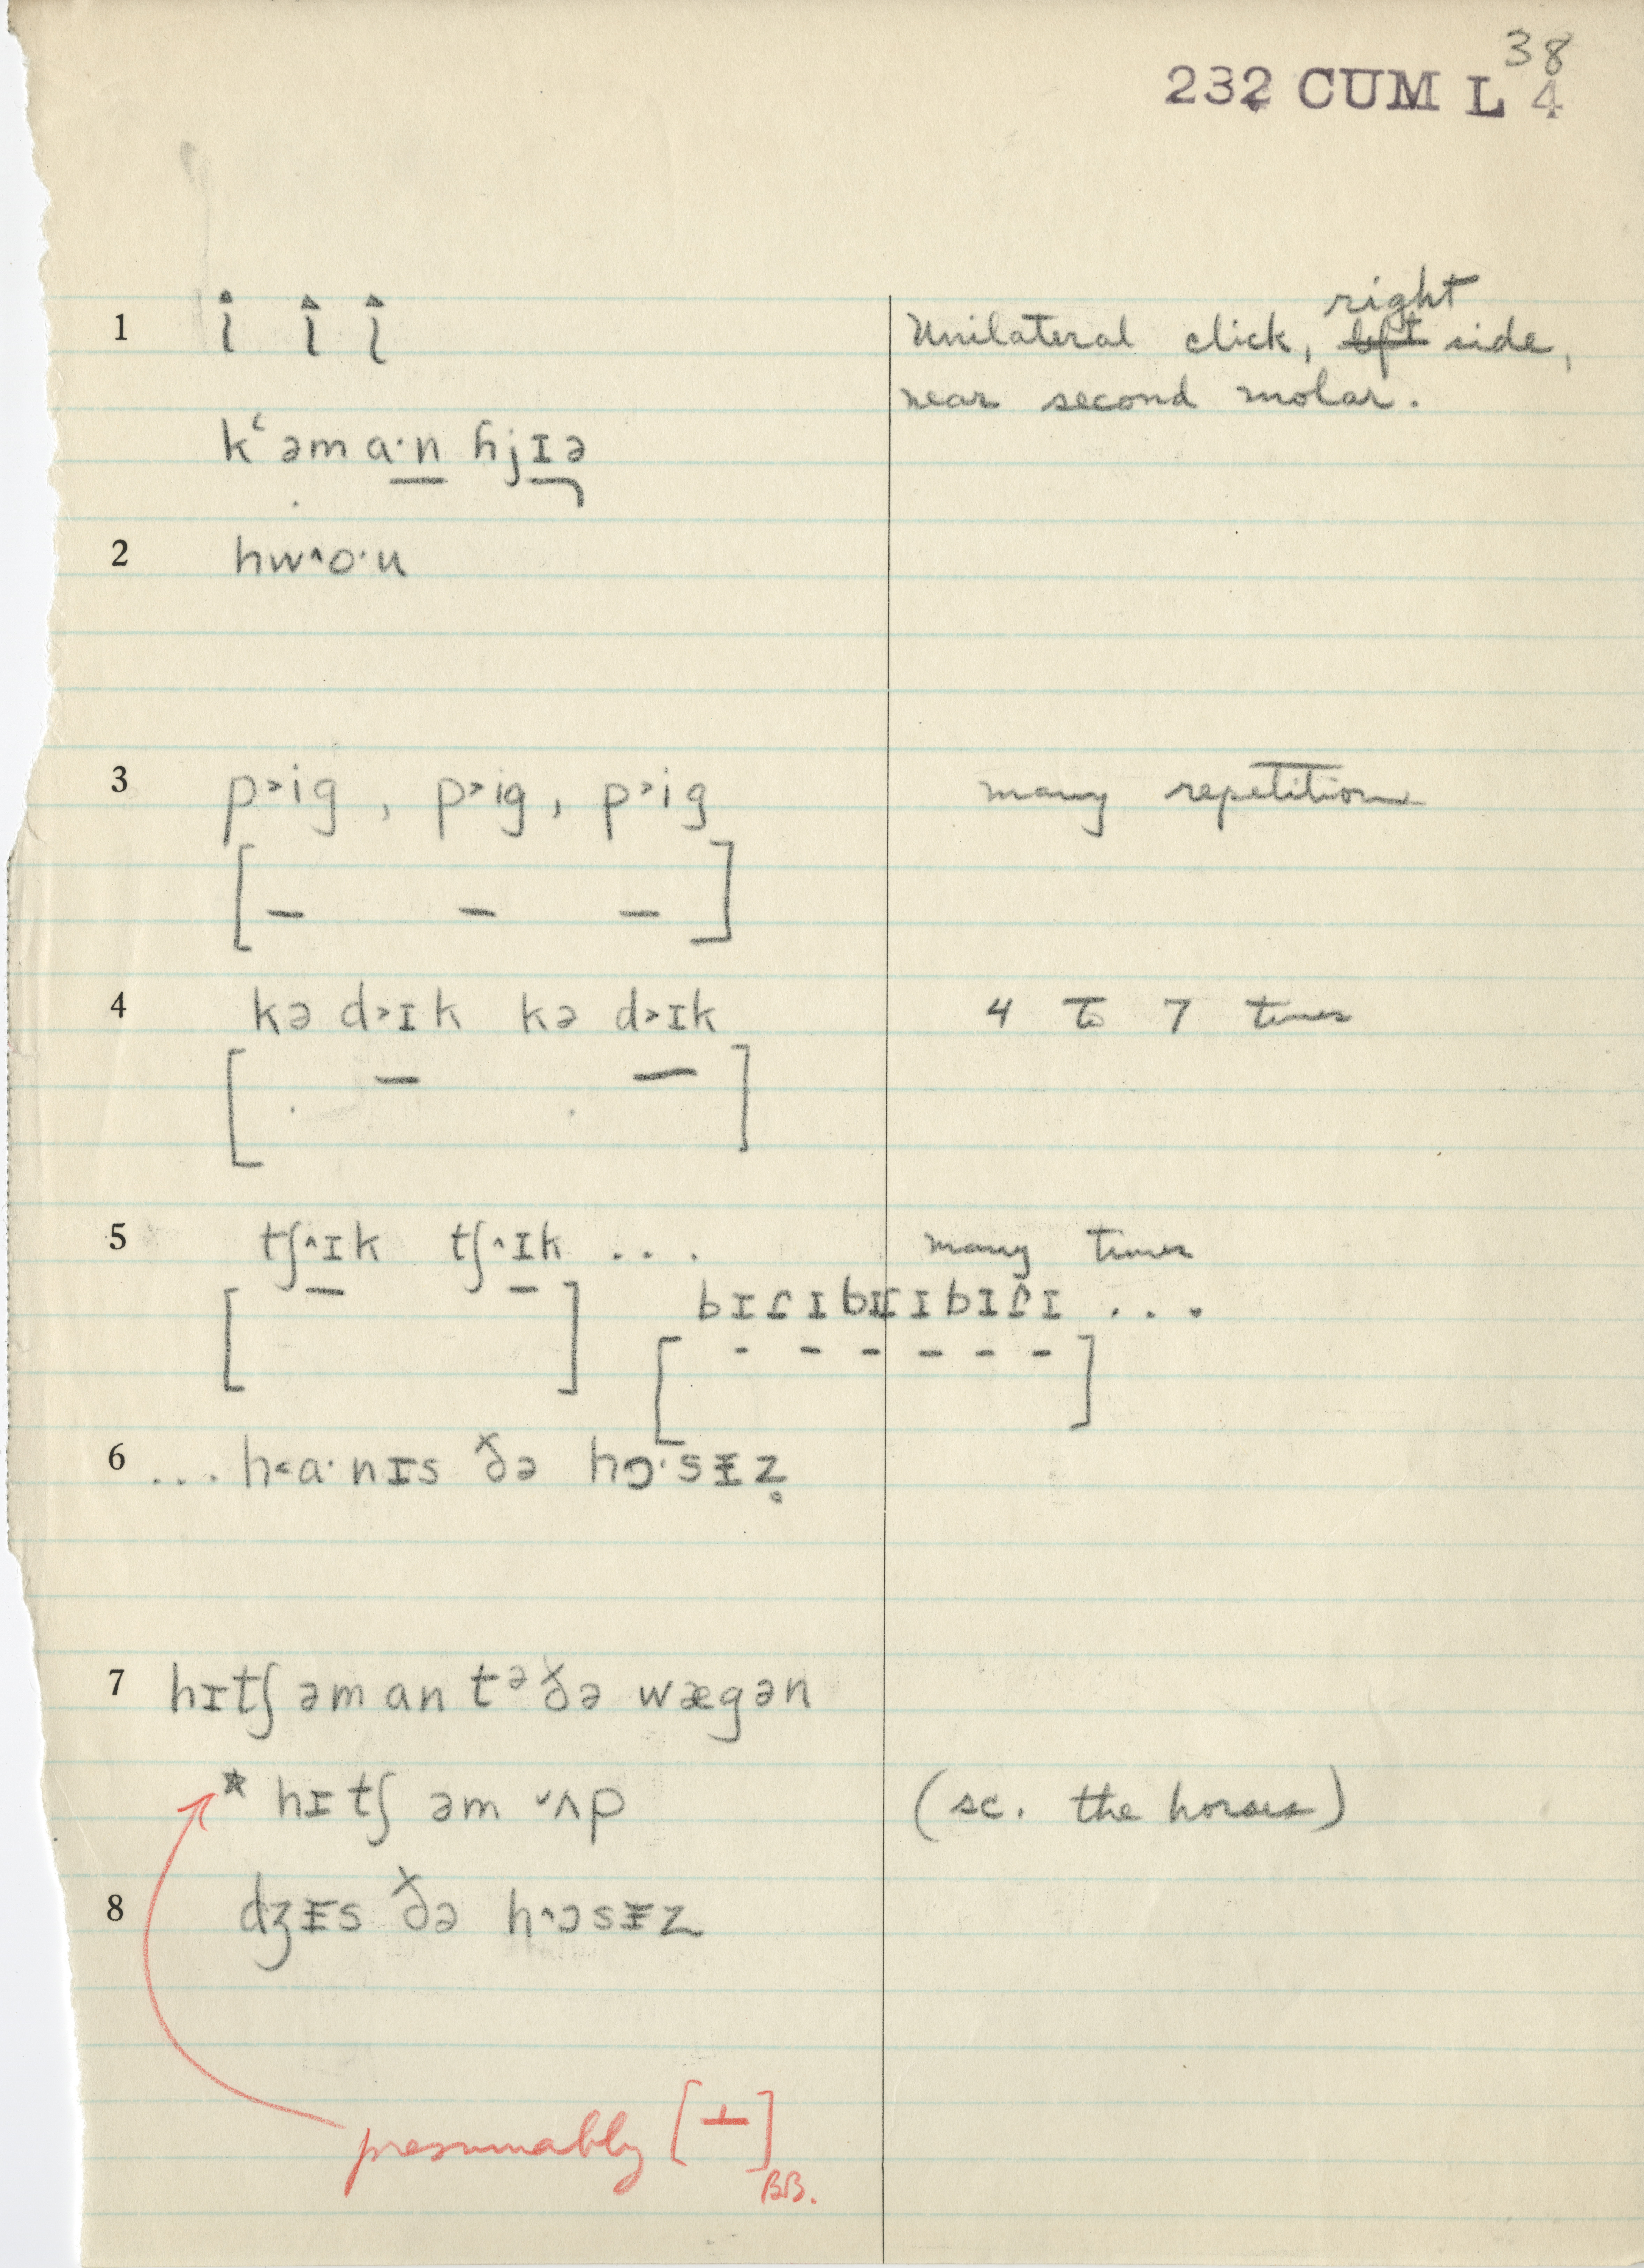 38
232 CUM L 4
right
1 Unilateral click, left side,
near second molar.
kʻəma·n hjɪə
2 hw^o·u
3 p>ig, p>ig, p>ig many repetition
[– – –]
4 kə d>ɪk kə d>ɪk 4 to 7 times
[. – . –]
5 tʃ^ɪk tʃ^ɪk ... many times
bɪɾɪbɪɾɪbɪɾɪ ...
[- - - - - -]
6 ...h<a·nɪs ðə hɔ·sɪ̵z̥
7 hɪtʃəman tᵊðə wægən
* hɪtʃ əm ˇʌp (sc. the horses)
8 dʒɪ̵s ðə h^ɔsɪ̵z
presumably [⊥]
BB.